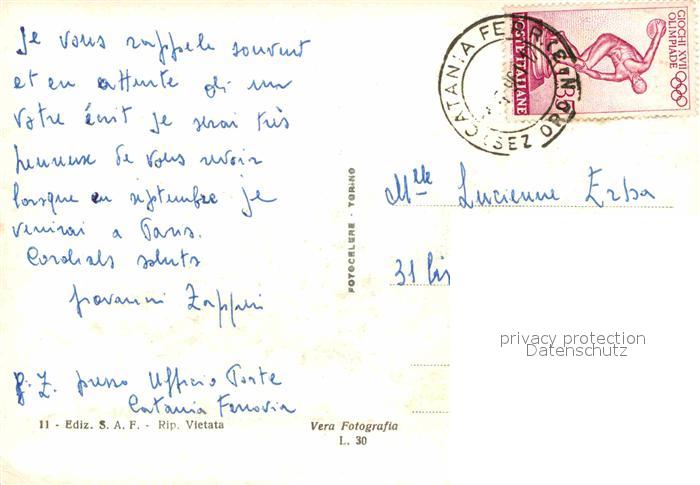 Je vous rappele souvent
et en attente di un
votre écrit je serai très
heureuse de vous revoir
lorsque en septembre je
venirai a Paris.
Cordials saluts
Giovanni Zapperi
G. Z. presso Ufficio Poste
Catania Ferrovia
11 - Ediz. S. A. F. - Rip. Vietata
Vera Fotografia
L. 30
FOTOCELERE - TORINO
CATANIA FERR
(SEZ ORD
POSTE ITALIANE
GIOCHI XVII
OLIMPIADE
Mlle Lucienne Erba
31 bis
privacy protection
Datenschutz